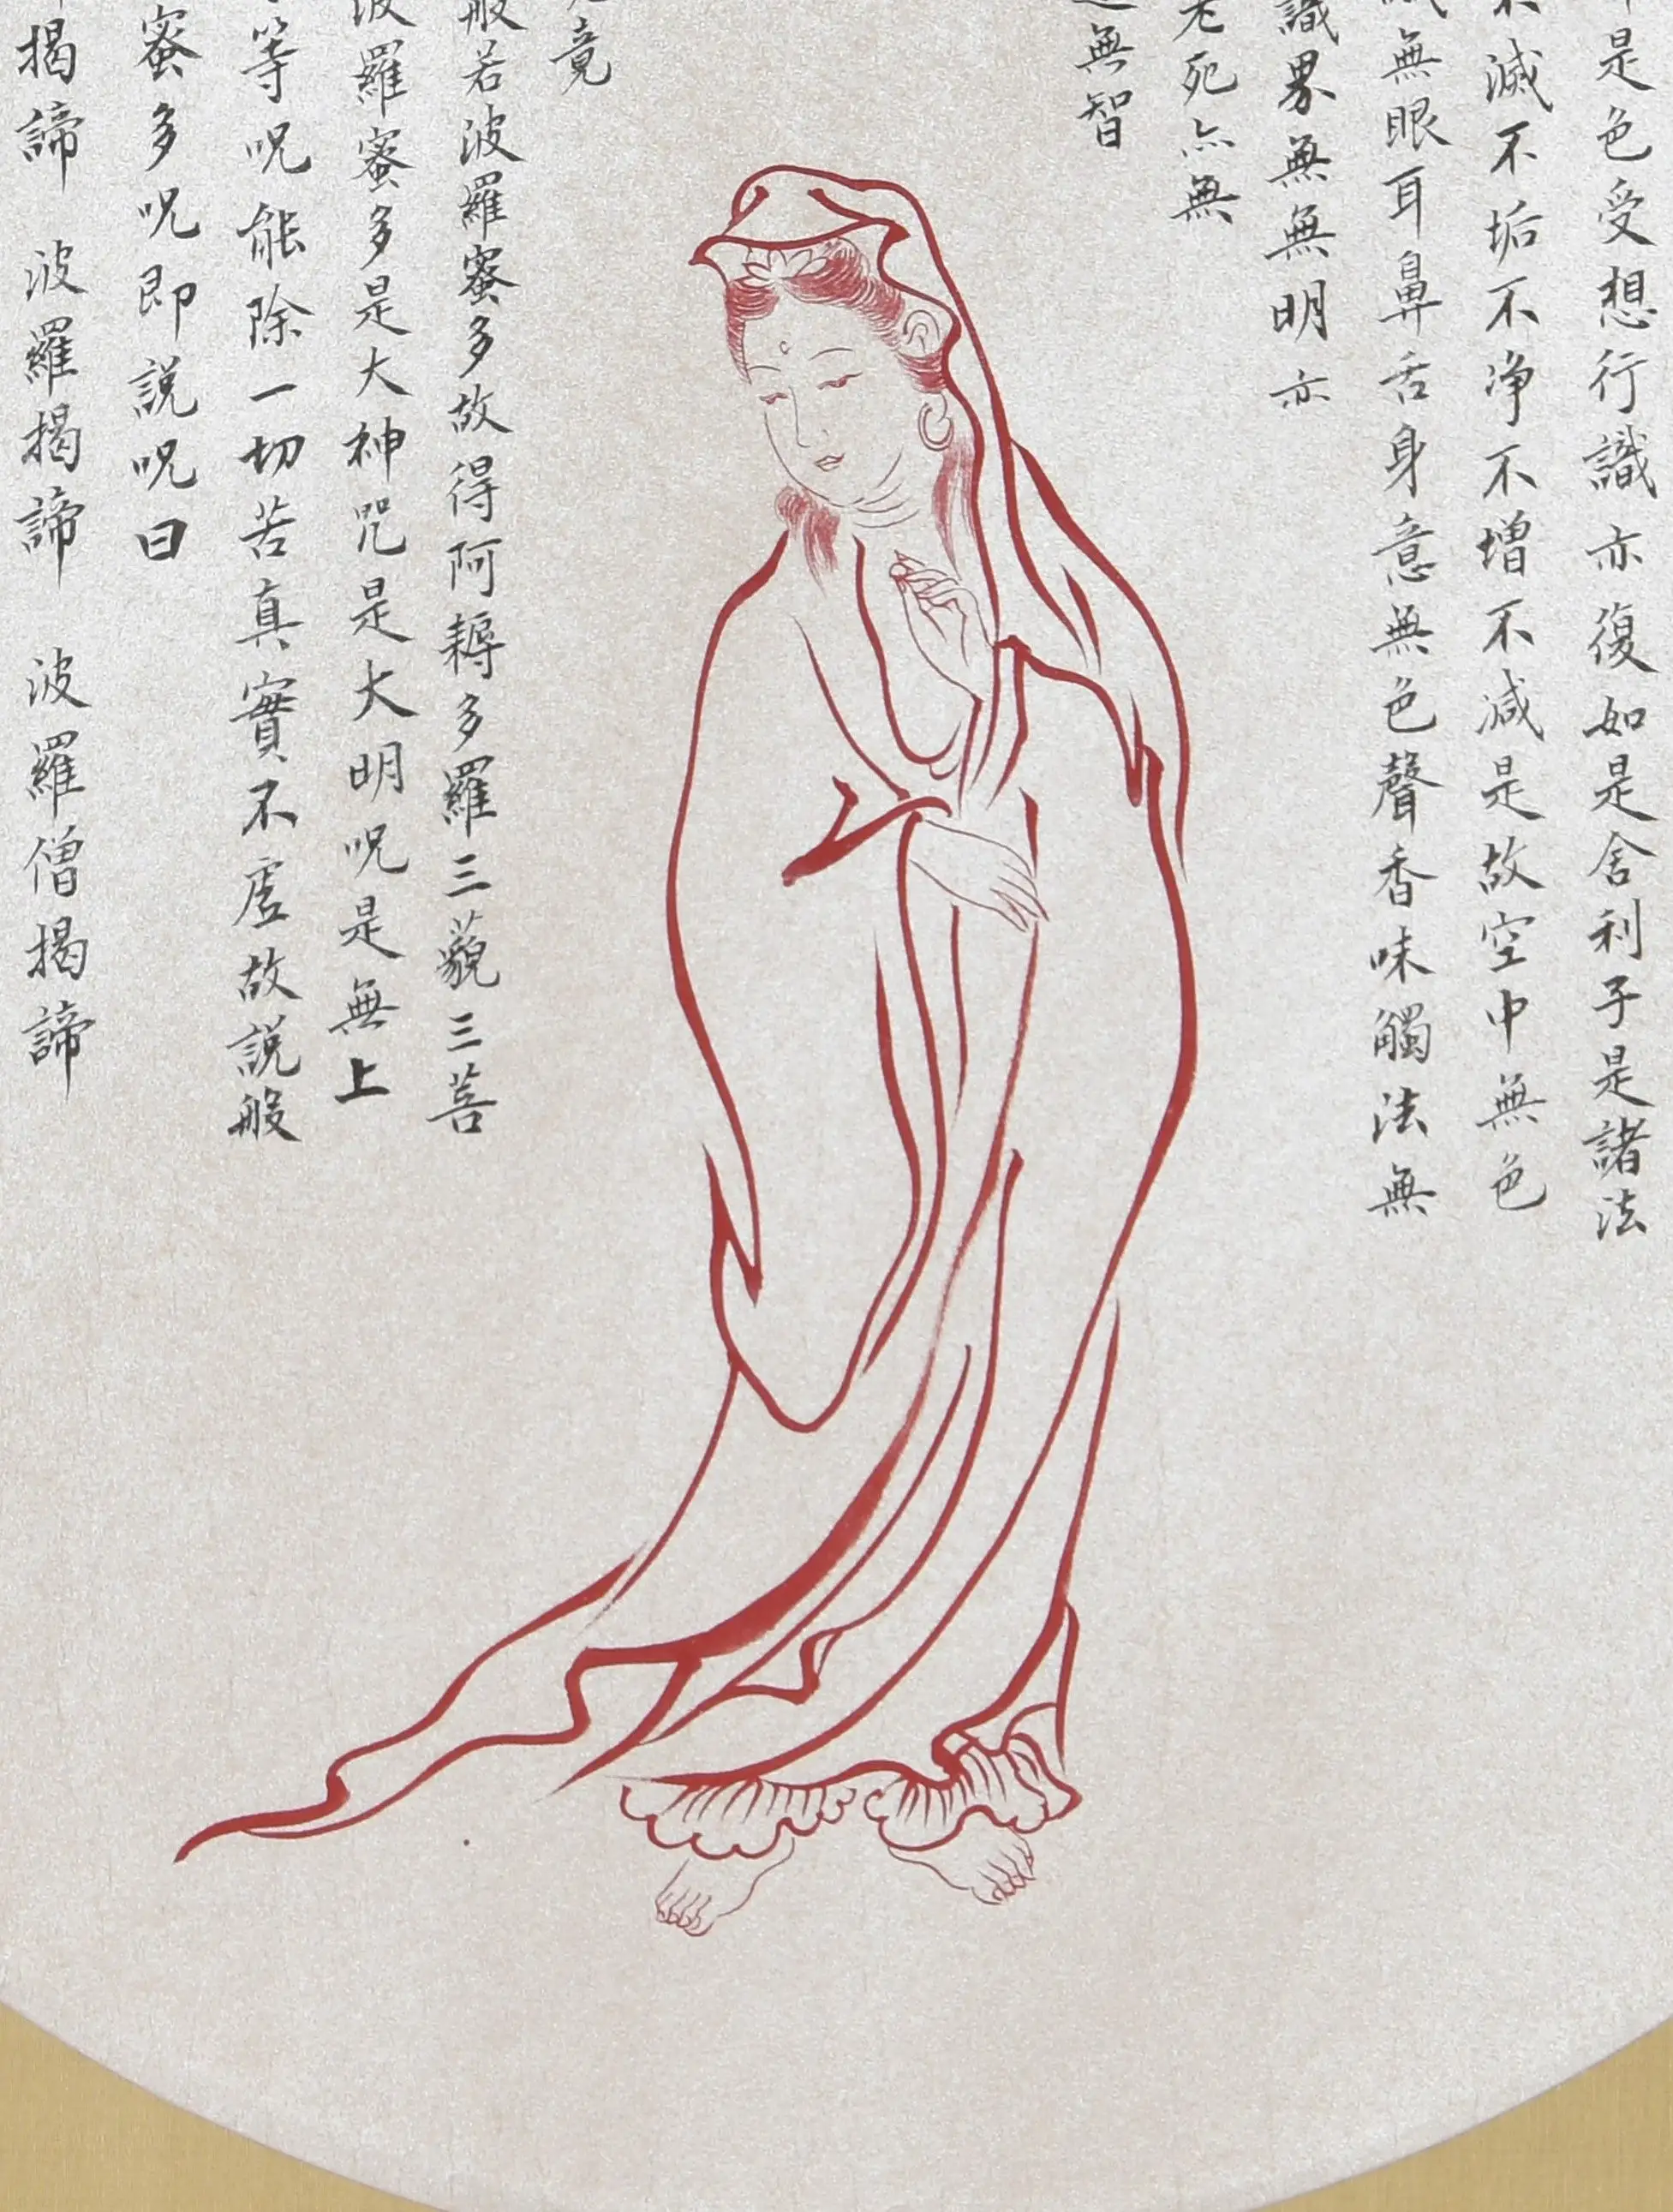 是色受想行識亦復如是舍利子是諸法
不滅不垢不净不增不減是故空中無色
無眼耳鼻舌身意無色聲香味觸法無
識界無無明亦
老死亦無
無智
竟
般若波羅蜜多故得阿耨多羅三藐三菩
波羅蜜多是大神咒是大明呪是無上
等呪能除一切苦真實不虛故説般
蜜多呪即説呪曰
揭諦 波羅揭諦 波羅僧揭諦